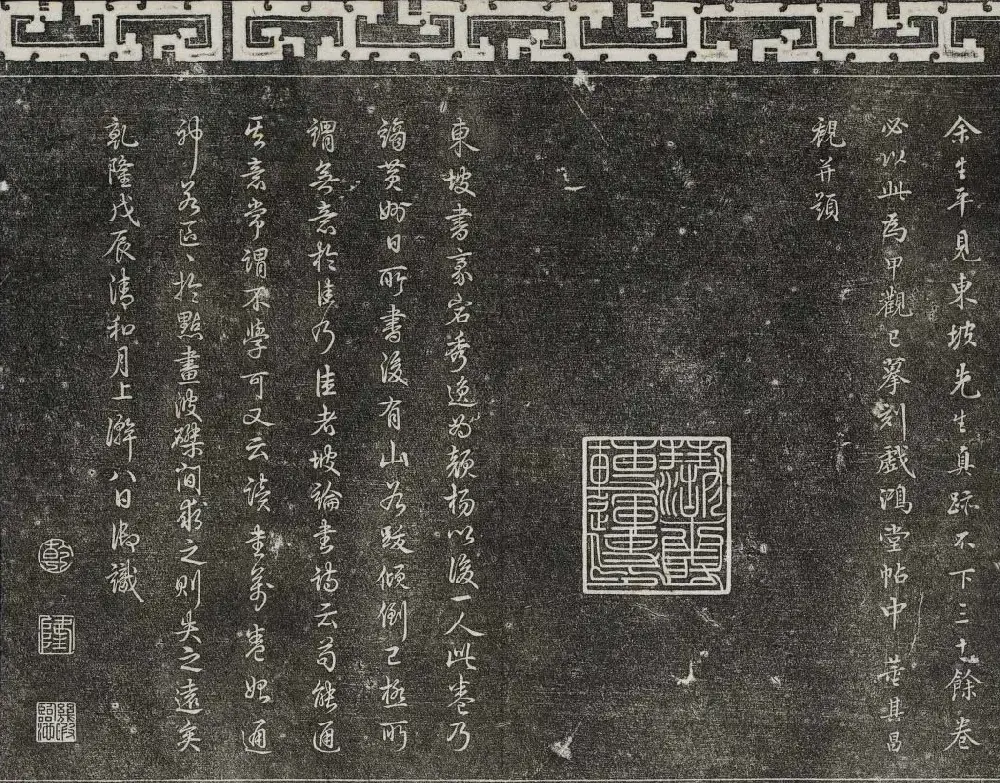 余生平見東坡先生真跡不下三十餘卷
必以此為甲觀已摹刻戲鴻堂帖中 董其昌
觀并題
東坡書豪宕秀逸為顏楊以後一人此卷乃
謫黃州日所書後有山谷跋傾倒已極所
謂無意於佳乃佳者坡論書詩云苟能通
其意常謂不學可又云讀書萬卷始通
神若區〻於點畫波磔間求之則失之遠矣
乾隆戊辰清和月上澣八日御識
乾
隆